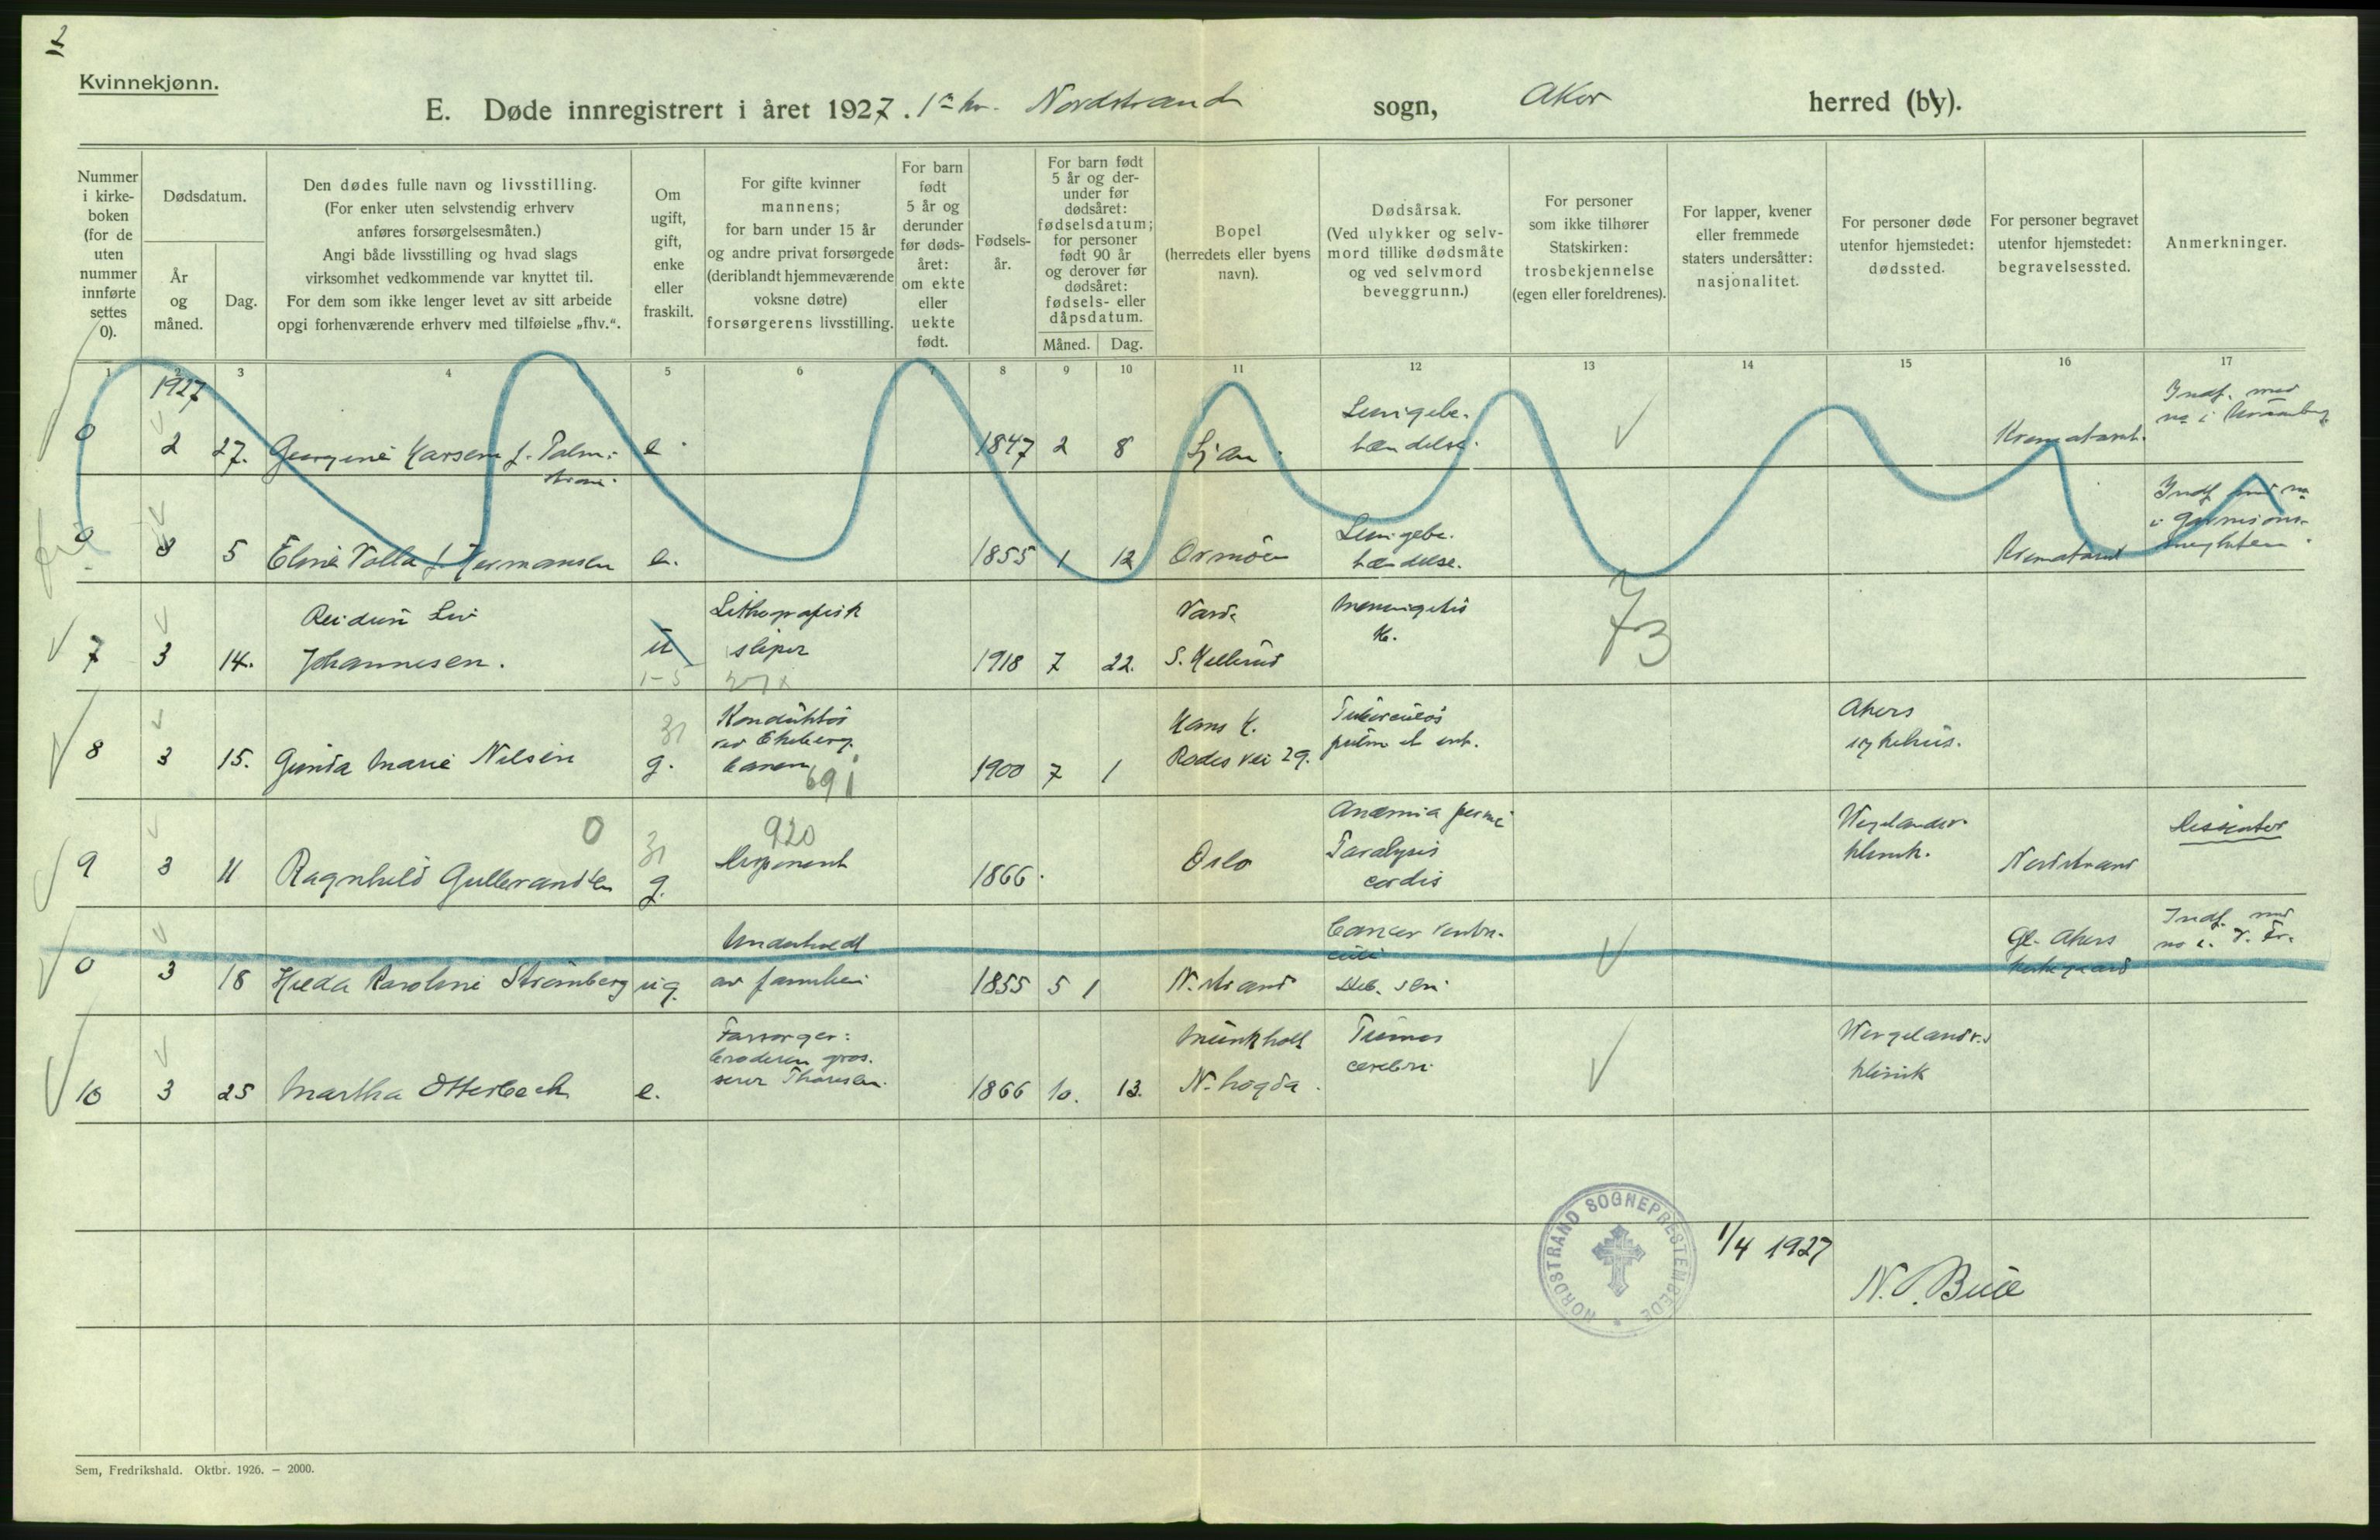 2
Kvinnekjønn.
E. Døde innregistrert i året 1927. 1ste kv. Nordstrand sogn, Aker herred (by).
Nummer i kirke-boken (for de uten nummer innførte settes 0).
Dødsdatum.
År og måned.
Dag.
Den dødes fulle navn og livsstilling.
(For enker uten selvstendig erhverv
anføres forsørgelsesmåten.)
Angi både livsstilling og hvad slags
virksomhet vedkommende var knyttet til.
For dem som ikke lenger levet av sitt arbeide
opgi forhenværende erhverv med tilføielse „fhv.“.
Om ugift, gift, enke eller fraskilt.
For gifte kvinner
mannens;
for barn under 15 år
og andre privat forsørgede
(deriblandt hjemmeværende
voksne døtre)
forsørgerens livsstilling.
For barn født 5 år og derunder før døds-året: om ekte eller uekte født.
Fødsels-år.
For barn født
5 år og der-
under før
dødsåret:
fødselsdatum;
for personer
født 90 år
og derover før
dødsåret:
fødsels- eller
dåpsdatum.
Måned. Dag.
Bopel
(herredets eller byens
navn).
Dødsårsak.
(Ved ulykker og selv-
mord tillike dødsmåte
og ved selvmord
beveggrunn.)
For personer
som ikke tilhører
Statskirken:
trosbekjennelse
(egen eller foreldrenes).
For lapper, kvener
eller fremmede
staters undersåtter:
nasjonalitet.
For personer døde
utenfor hjemstedet:
dødssted.
For personer begravet
utenfor hjemstedet:
begravelsessted.
Anmerkninger.
1 2 3 4 5 6 7 8 9 10 11 12 13 14 15 16 17
1927
0 2 27. Georgine Karsem f. Palm-
strøm. e. 1847 2 8 Ljan. Lungebe-
tændelse. Krematoriet. Indf. med
no i
0 3 5 Eline Volla f. Hermansen e. 1855 1 12 Ormöen Lungebe-
tændelse. Krematoriet Indf med no
i Garnisons-
menigheten.
7 3 14. Reidun Liv
Johannesen. u 1-5 Lithografisk
sliper 1918 7 22. Varde
S. Hellerud Meningitis
73
8 3 15. Gunda Marie Nilsen 31 g. Konduktør
ved Ekeberg-
banen 691 1900 7 1 Hans H.
Rodes vei 29. Tuberculos
pulm et int. Akers
sykehus.
9 3 11 Ragnhild Gulbrandsen 0 31 g. 920
Disponent 1866. Oslo Anæmia pernic
Paralysis
cordis Wergelands-
klinik. Nordstrand Dissenter
0 3 18 Hilda Karoline Strömberg ug. Underholdt
av familien 1855 5 1 N.strand Cancer ventri-
culi
Deb. sen. Gl. Akers
kirkegaard Indf. med
no i. V. Er.
10 3 25 Martha Otterbech e. Forsorger:
broderen gros-
serer Thoresen. 1866 10. 13. Munkholt
N-høgda. Tumor
cerebri Wergelands.
klinik
NORDSTRAND SOGNEPRESTEMBEDE
1/4 1927
N. Bue
Sem, Fredrikshald. Oktbr. 1926. — 2000.